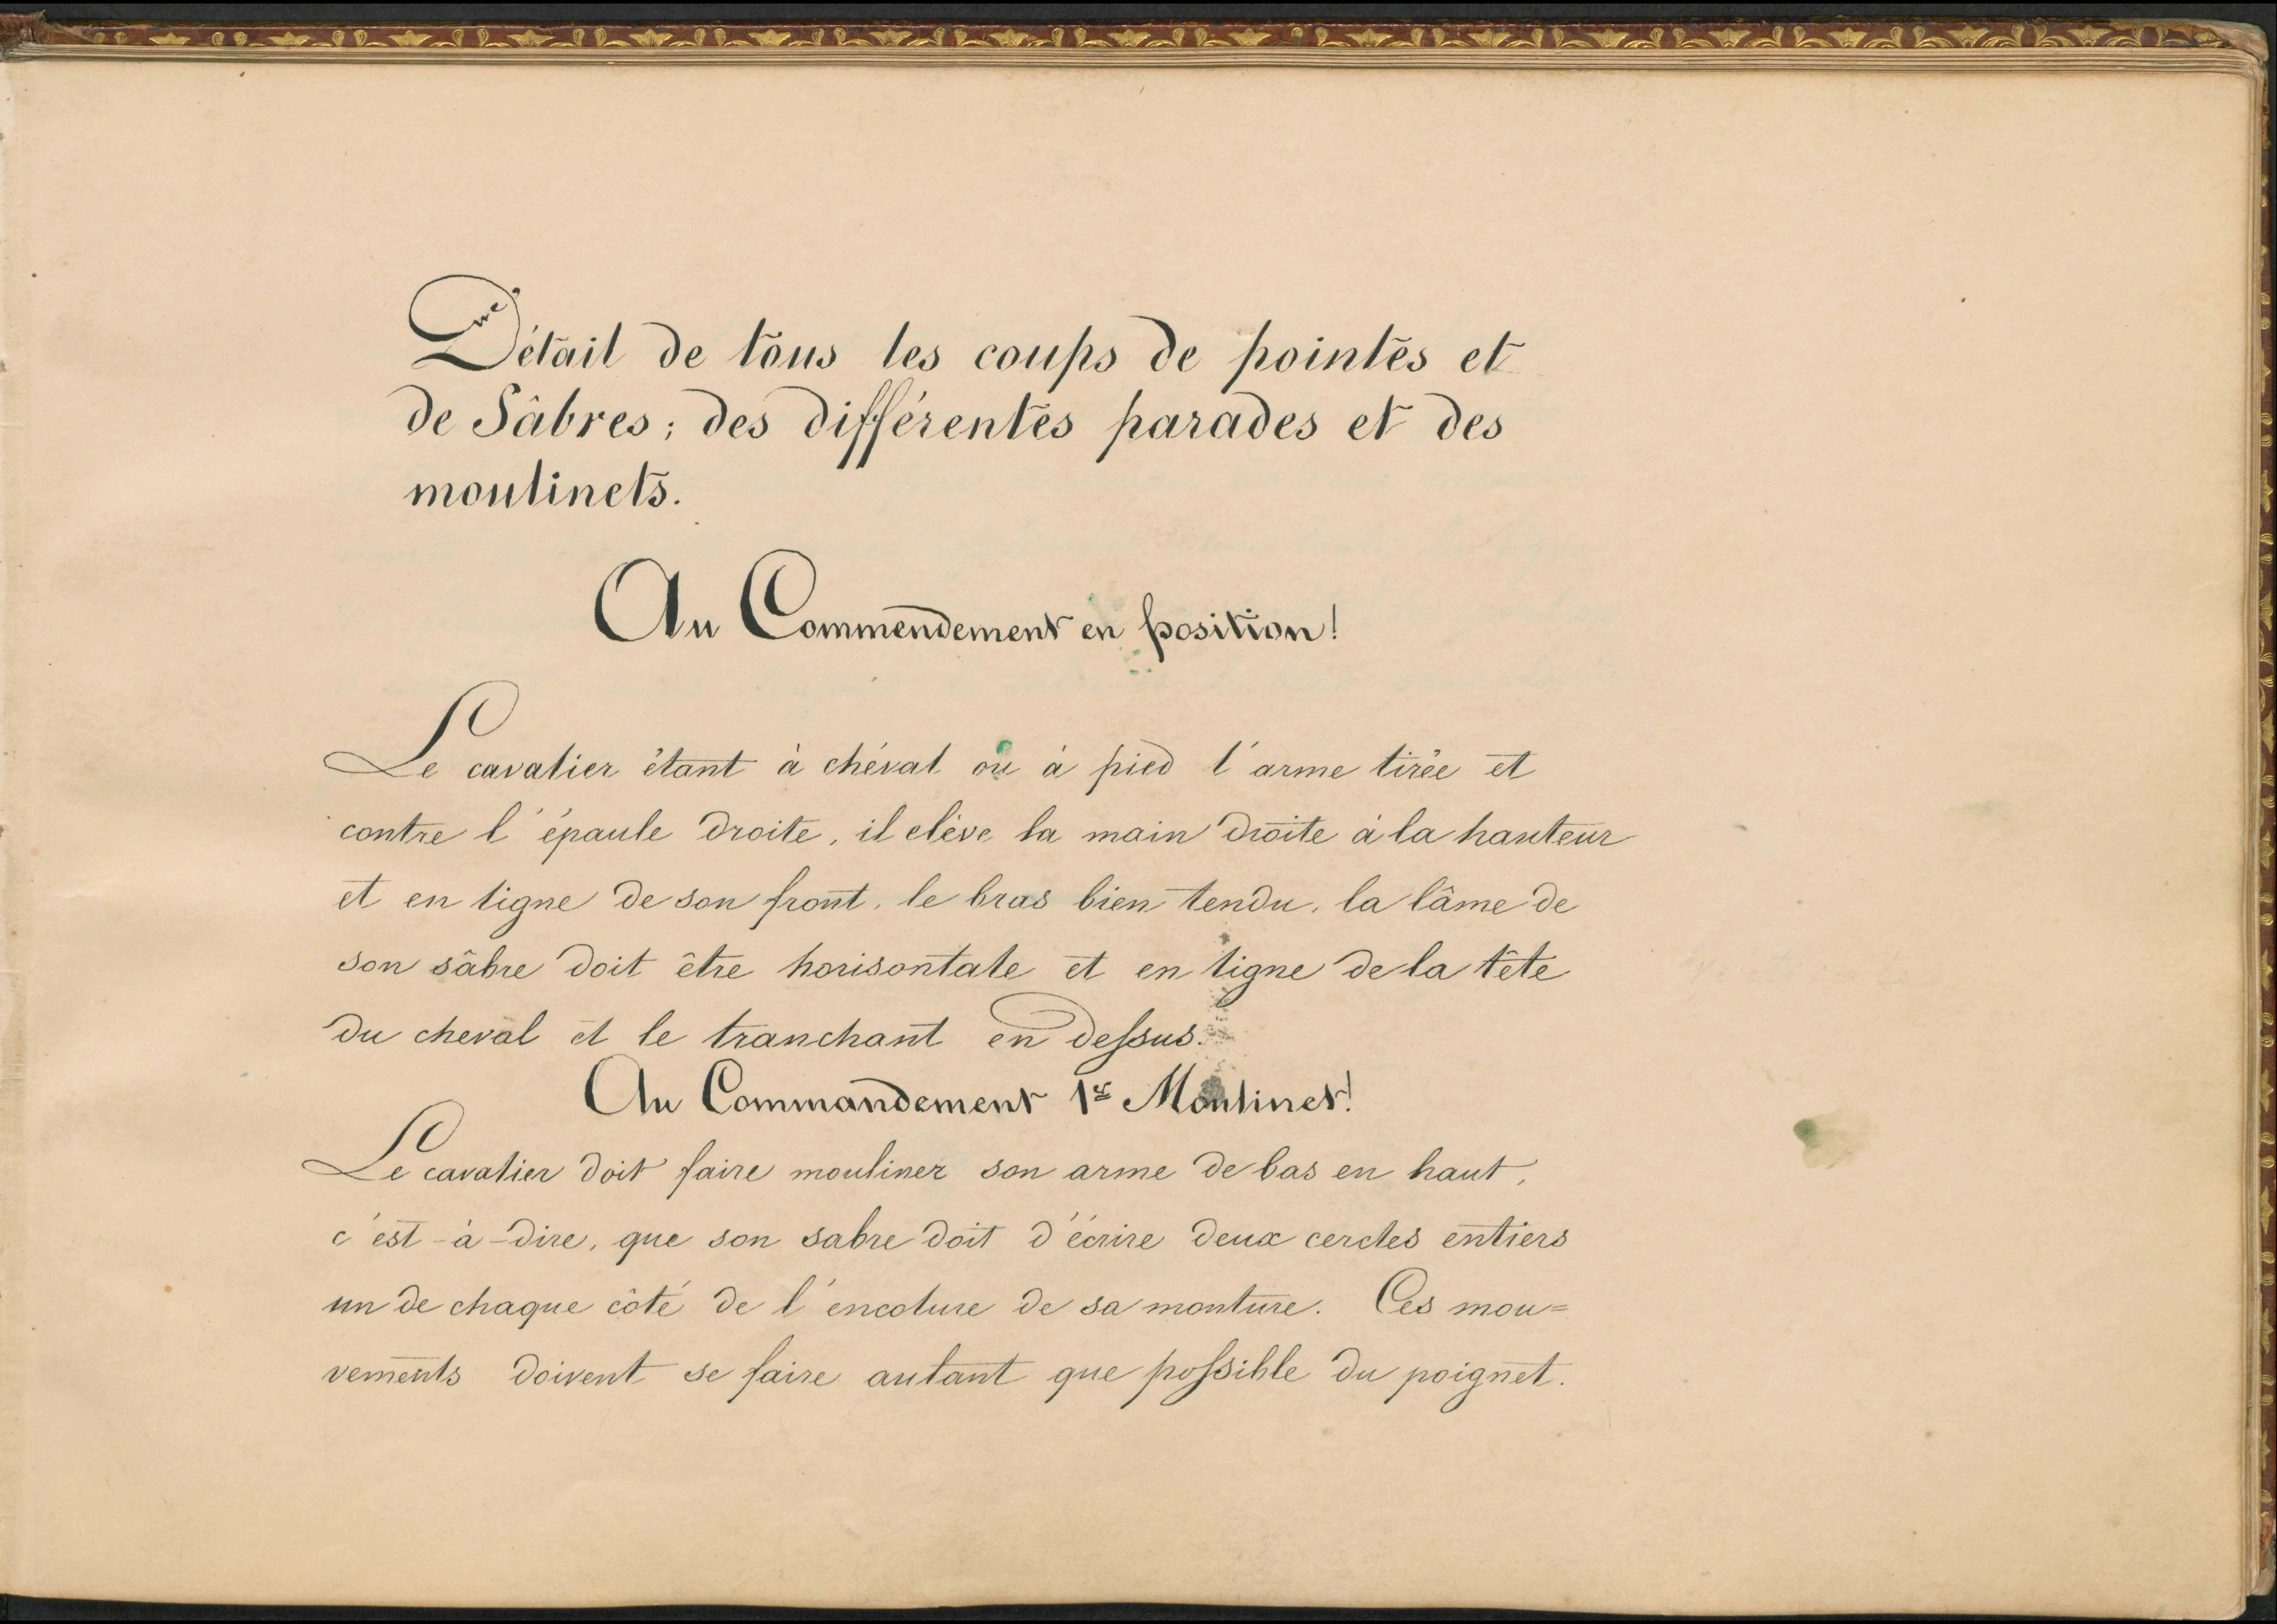 Détail de tous les coups de pointes et
de Sâbres; des différentes parades et des
moulinets.
Au Commendement en position!
Le cavalier étant à chéval où à pied l'arme tirée et
contre l'épaule droite, il elève la main droite à la hauteur
et en ligne de son front, le bras bien tendu, la lâme de
son sâbre doit être horisontale et en ligne de la tête
du cheval et le tranchant en dessus.
Au Commandement 1er Moulinet!
Le cavalier doit faire mouliner son arme de bas en haut,
c'est-à-dire, que son sabre doit d'écrire deux cercles entiers
un de chaque côté de l'encolure de sa monture. Ces mou=
vements doivent se faire autant que possible du poignet.